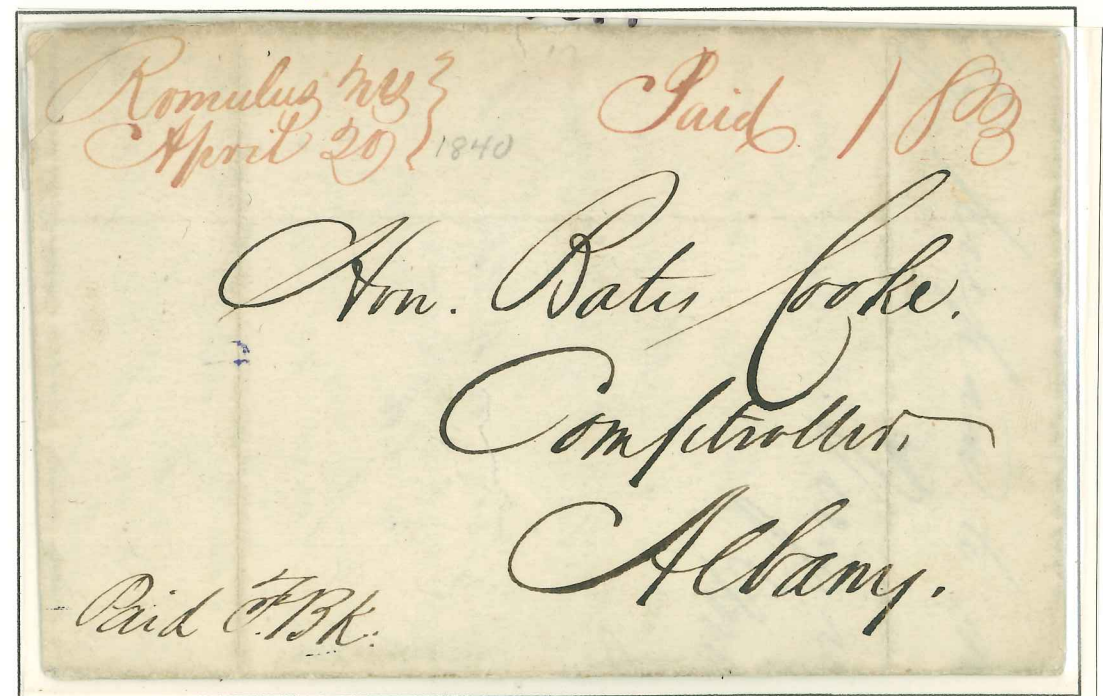 Romulus NY
April 20 1840
Paid
Hon. Bates Cooke.
Comptroller,
Albany.
Paid F. Bk.